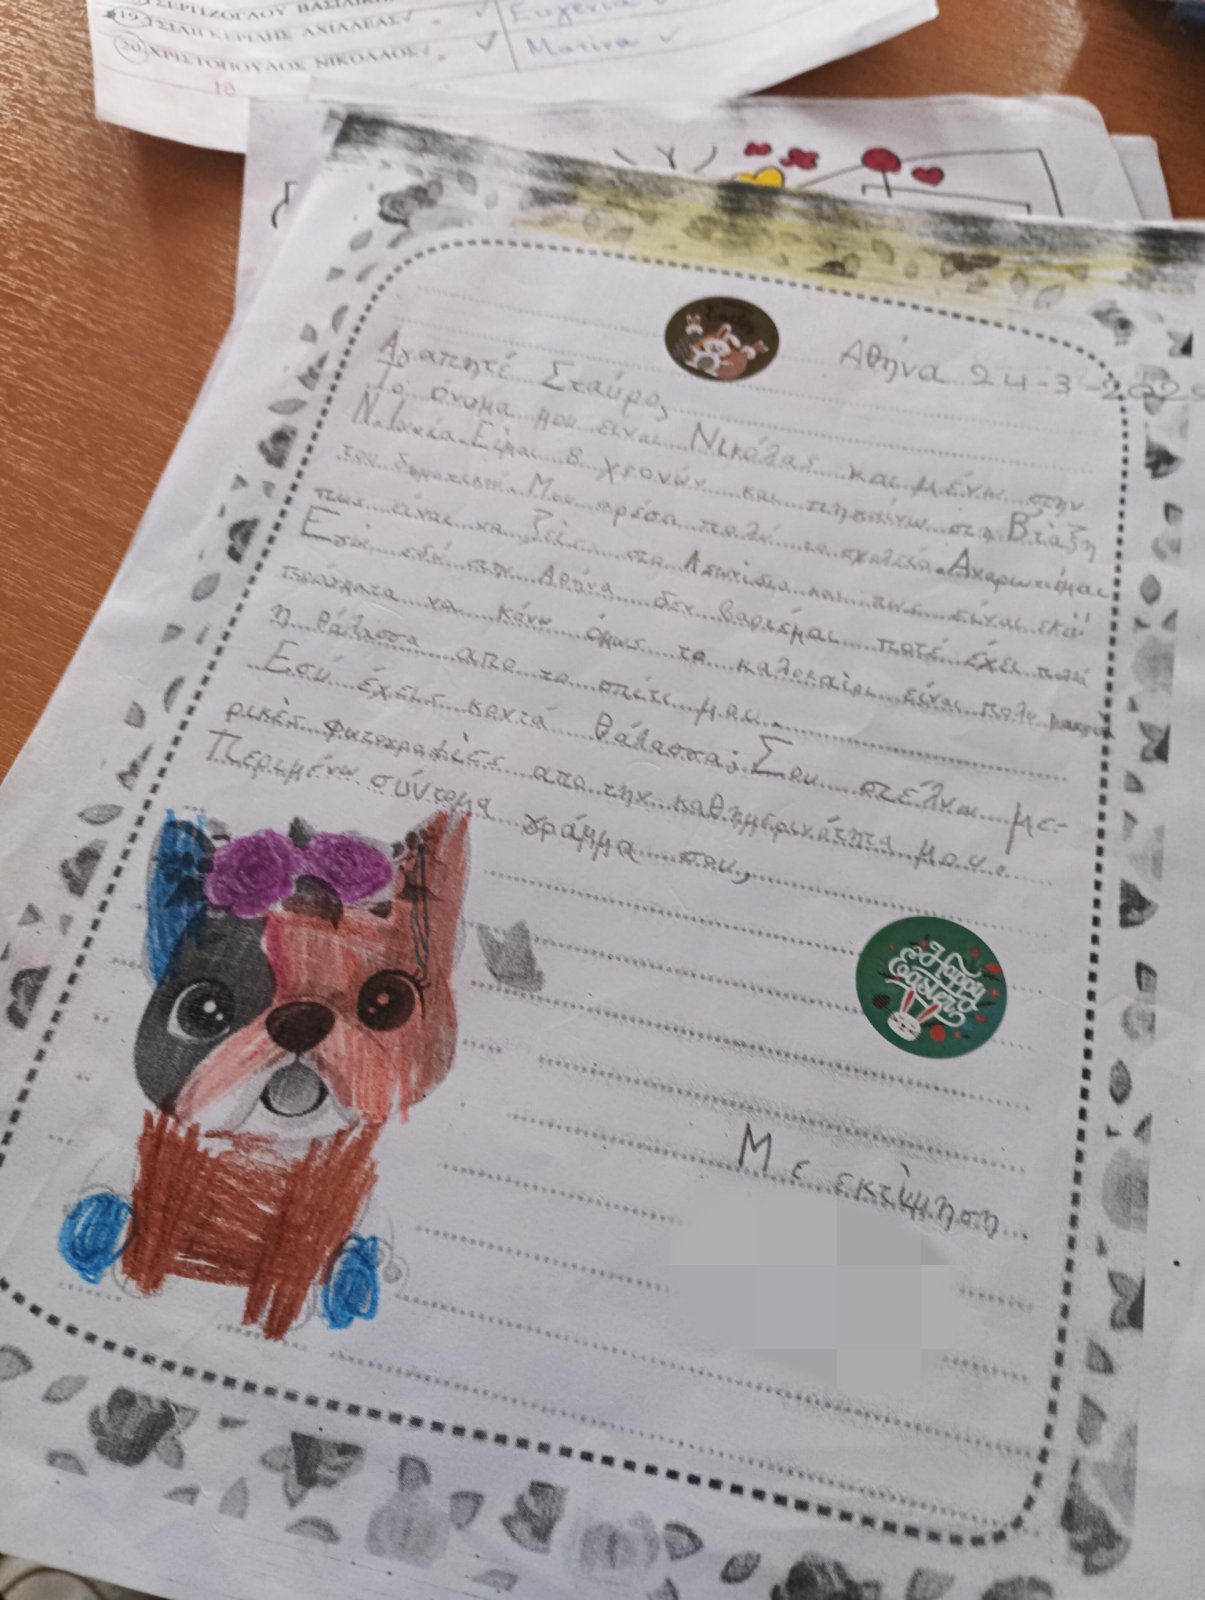 ΣΕΡΓΙΖΟΓΛΟΥ
19. ΑΧΙΛΛΕΑΣ
20. ΧΡΙΣΤΟΠΟΥΛΟΣ ΝΙΚΟΛΑΟΣ
18
Eugenia
Marina
Αθήνα 24-3-
Αγαπητέ Σταύρος
Το όνομα μου είναι Νικόλας και μένω στην
Νίκαια. Είμαι 8 χρονών και πηγαίνω στη Βτάξη
του δημοτικού. Μου αρέσει πολύ το σχολείο.
πως είναι να ζεις στα και πως είναι εκεί
Εγώ εδώ στην Αθήνα δεν βαριέμαι ποτέ έχει πολλά
πράγματα να κάνω όμως το καλοκαίρι είναι πολυ μακρυά
η θάλασσα απο το σπίτι μου.
Εσύ έχεις κοντά θάλασσα; Σου στέλνω με-
ρικές φωτογραφίες απο την καθημερινότητα μου.
Περιμένω σύντομα γράμμα σου,
Happy
Easter
Με εκτίμηση